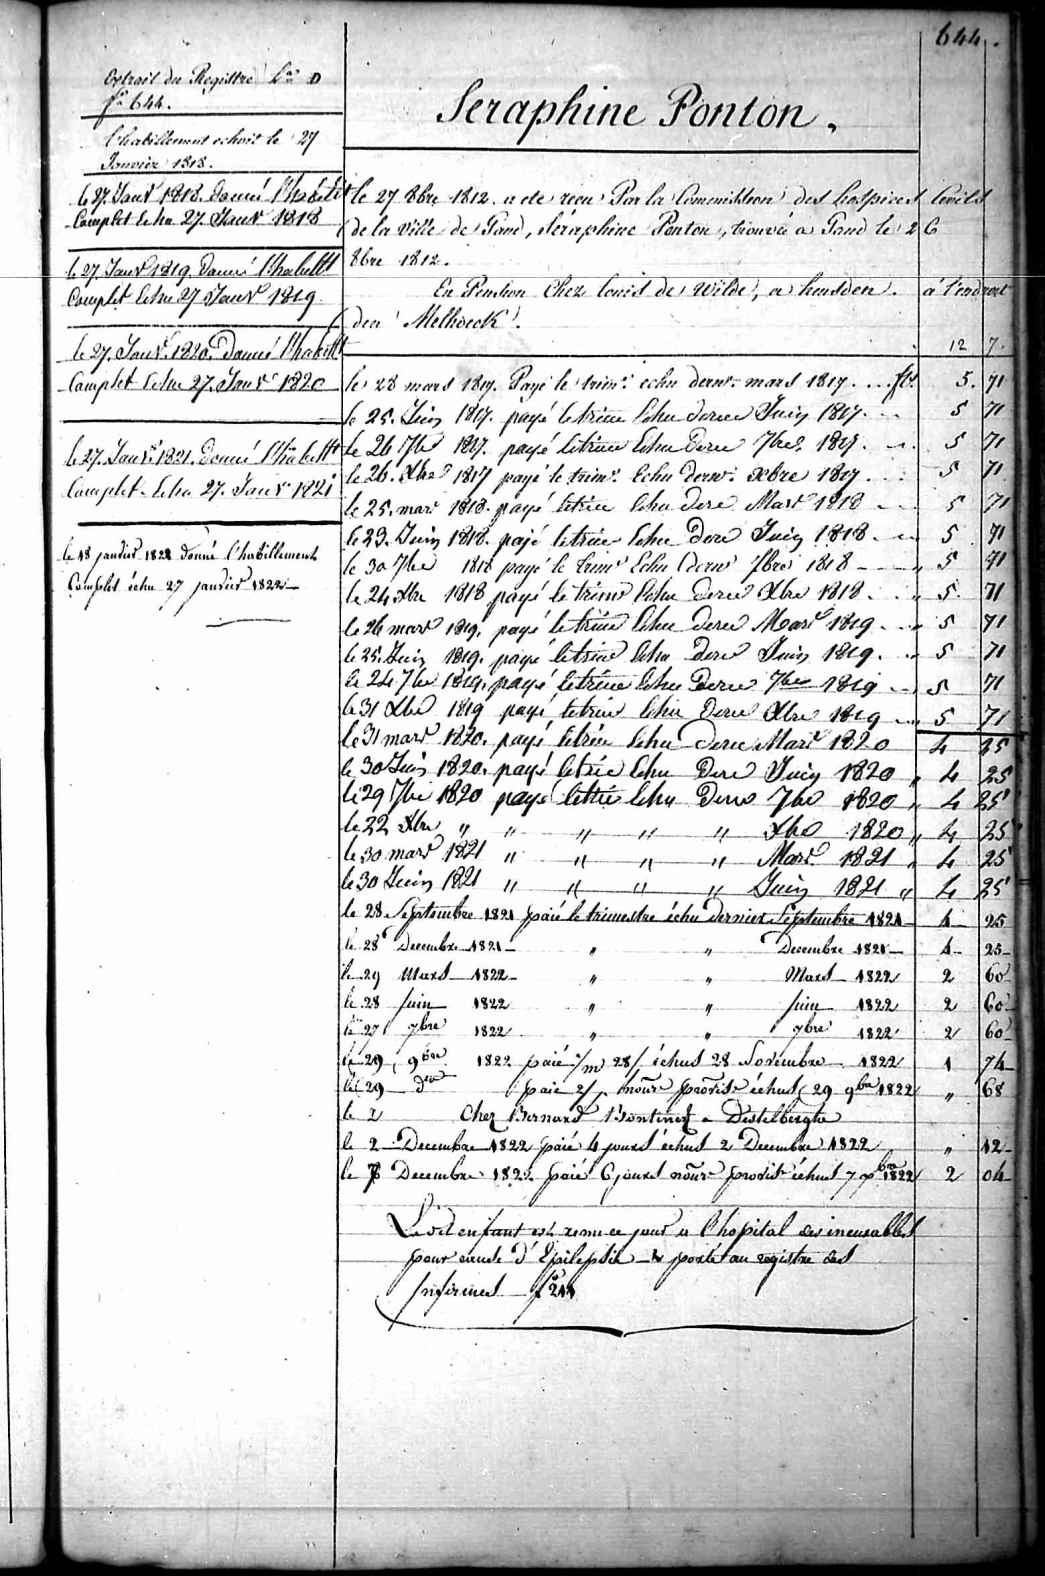 644.
Extrait du Registre L.ra D
f.o 644.
L'habillement echoit le 27
Janvier 1818.
le 27. Janv.r 1818. Donné l'habill.t
Complet Echu 27. Janv.r 1818
le 27. Janv.r 1819. Donné l'habillt
Complet Echu 27 Janv.r 1819
le 27. Janv.r 1820. Donné l'habillt
Complet Echu 27. Janv.r 1820
le 27. Janv.r 1821. Donné l'habillt
Complet Echu 27. Janv.r 1821
le 18 janvier 1822 donné l'habillement
Complet échu 27 janvier 1822
Seraphine Ponton.
le 27 8bre 1812. a eté reçu Par la Commission des hospices Civils
de la ville de Gand, Séraphine Ponton, trouvée a Gand le 26
8bre 1812.
En Pension Chez Louis de Wilde, a heusden. à l'endroit
den Melhoeck.
12 7.
le 28 mars 1817. Payé le trim.e echu dern.r mars 1817. fls 5. 71
le 25. Juin 1817. payé le trime Echu dernr Juin 1817. 5 71
le 26 7bre 1817. payé le trime Echu dernr 7bre 1817. 5 71
le 26. Xbre 1817 payé le trim.e Echu dern.r xbre 1817 5 71
le 25. mars 1818. payé le trime Echu dernr Mars 1818 5 71
le 23. Juin 1818. payé le trime Echu dernr Juin 1818 5 71
le 30 7bre 1818 payé le trime Echu dernr 7bre 1818 " 5 71
le 24 Xbre 1818 payé le trime Echu dernr Xbre 1818. " 5 71
le 26 mars 1819. payé le trime Echu dernr Mars 1819 " 5 71
le 25. Juin 1819. payé le trime Echu dernr Juin 1819. " 5 71
le 24 7bre 1819. payé le trime Echu dernr 7bre 1819 5 71
le 31 Xbre 1819 payé le trime Echu dernr Xbre 1819 5 71
le 31 mars 1820. payé le trime Echu dernr Mars 1820 4 25
le 30 Juin 1820. payé le trime Echu dernr Juin 1820 " 4 25
le 29 7bre 1820 payé le trime Echu dernr 7bre 1820 " 4 25
le 22 Xbre " " " " " Xbre 1820 " 4 25
le 30 mars 1821 " " " " Mars 1821 " 4 25
le 30 Juin 1821 " " " " Juin 1821 " 4 25
le 28 Septembre 1821 paié le trimestre échu dernier Septembre 1821 4 25
le 28 Decembre 1821 " " Decembre 1821 4 25
le 29 Mars 1822 " " Mars 1822 2 60
le 28 juin 1822 " " juin 1822 2 60
le 27 7bre 1822 " " 7bre 1822 2 60
le 29 9bre 1822 paié 2/m 28/ échus 28 Novembre 1822 1 74
le 29 do paié 2/ nour provis échus 29 9bre 1822 " 68
le 2 Chez Bernard Bontinck a Destelbergte
le 2 Decembre 1822 paié 4 jours échus 2 Decembre 1822 " 12
le 7 Decembre 1822. paié 6 jours nour provis échus 7 Xbre 1822 2 04
Ledit enfant est remis ce jour a l'hopital des incurables
pour cause d'Epilepsie & porté au registre des
Infirmes fo 244